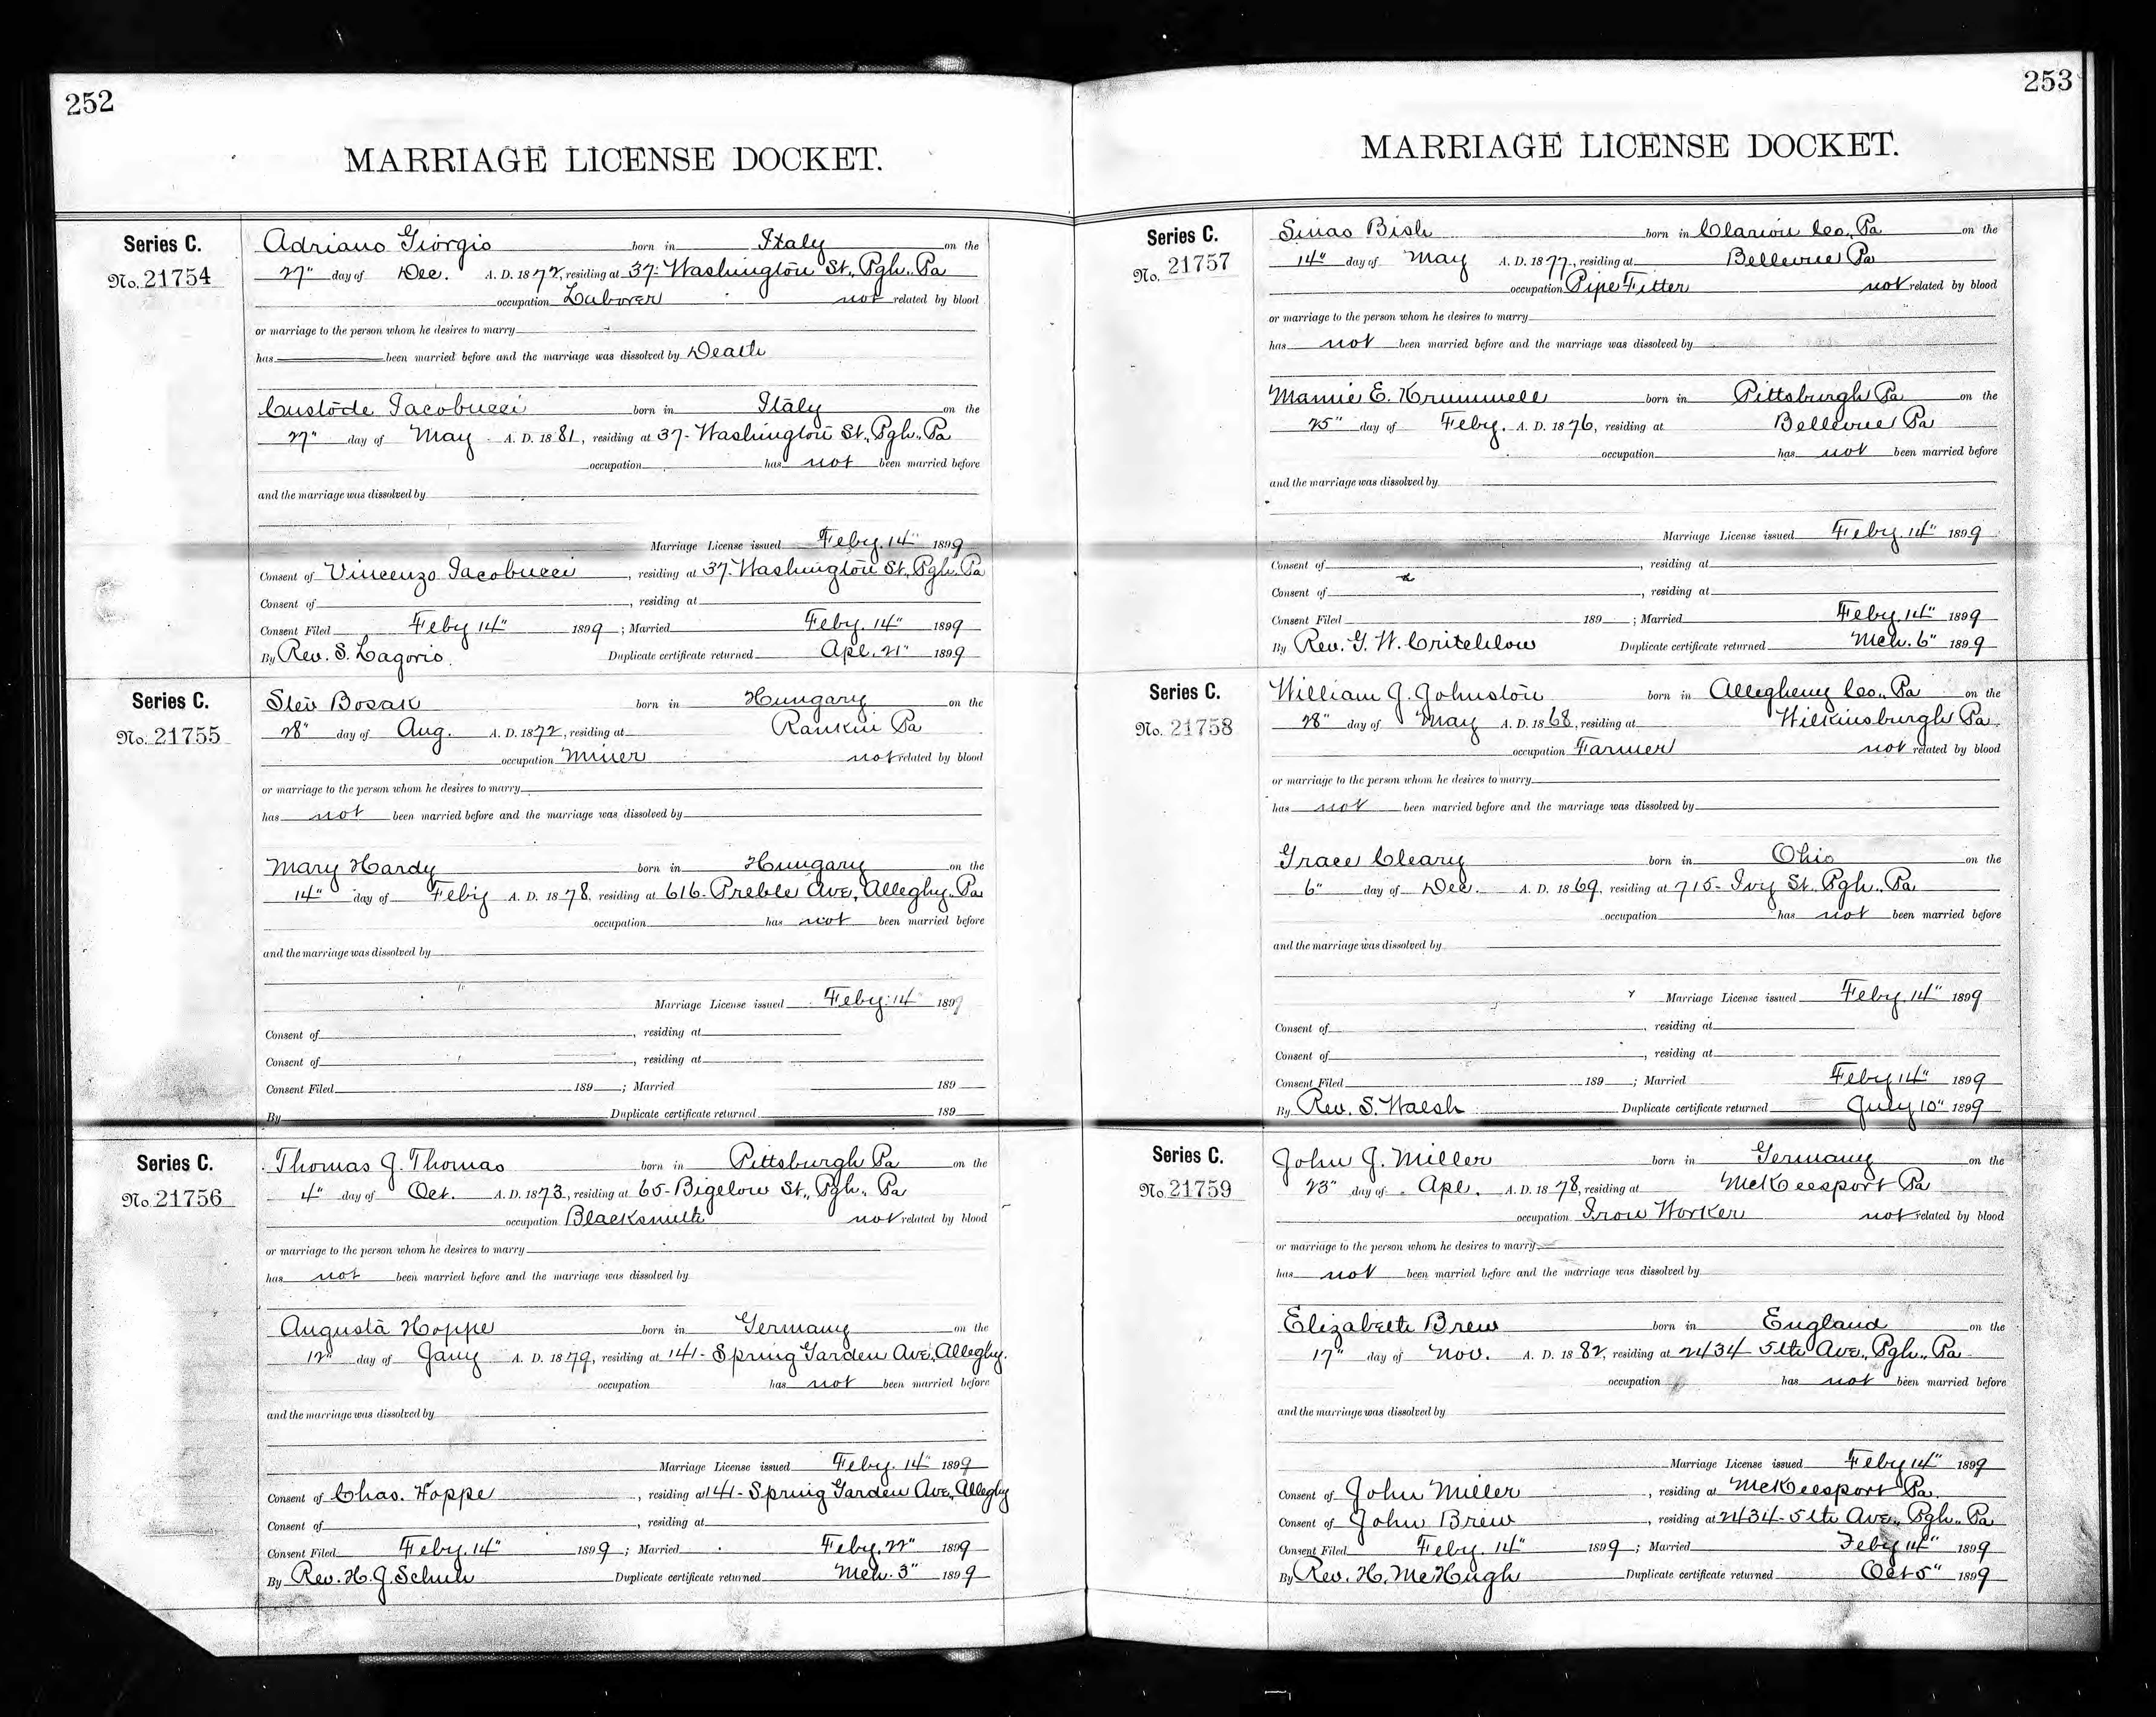 252
MARRIAGE LICENSE DOCKET.
Series C.
No. 21754
Adriano Giorgio born in Italy on the
27" day of Dec. A. D. 1872, residing at 37. Washington St., Pgh., Pa
occupation Laborer not related by blood
or marriage to the person whom he desires to marry
has been married before and the marriage was dissolved by Death
Custode Iacobucci born in Italy on the
27" day of May A. D. 1881, residing at 37- Washington St., Pgh., Pa
occupation has not been married before
and the marriage was dissolved by
Marriage License issued Feby. 14" 1899
Consent of Vincenzo Iacobucci, residing at 37. Washington St., Pgh. Pa
Consent of , residing at
Consent Filed Feby 14" 1899; Married Feby. 14" 1899
By Rev. S. Lagorio. Duplicate certificate returned Apl. 21" 1899
Series C.
No. 21755
Stev Bosak born in Hungary on the
28" day of Aug. A. D. 1872, residing at Rankin Pa
occupation Miner not related by blood
or marriage to the person whom he desires to marry
has not been married before and the marriage was dissolved by
Mary Hardy born in Hungary on the
14" day of Feby A. D. 1878, residing at 616- Preble Ave, Alleghy. Pa
occupation has not been married before
and the marriage was dissolved by
Marriage License issued Feby. 14 1899
Consent of , residing at
Consent of , residing at
Consent Filed 189 ; Married 189
By Duplicate certificate returned 189
Series C.
No. 21756
Thomas J. Thomas born in Pittsburgh Pa on the
4" day of Oct. A. D. 1873, residing at 65- Bigelow St., Pgh., Pa
occupation Blacksmith not related by blood
or marriage to the person whom he desires to marry
has not been married before and the marriage was dissolved by
Augusta Hoppe born in Germany on the
12" day of Jany A. D. 1879, residing at 141- Spring Garden Ave, Alleghy.
occupation has not been married before
and the marriage was dissolved by
Marriage License issued Feby. 14" 1899
Consent of Chas. Hoppe, residing at 141- Spring Garden Ave, Alleghy
Consent of , residing at
Consent Filed Feby. 14" 1899; Married Feby. 22" 1899
By Rev. H. J. Schuh Duplicate certificate returned Mch. 3" 1899
253
MARRIAGE LICENSE DOCKET.
Series C.
No. 21757
Sinas Bish born in Clarion Co., Pa on the
14" day of May A. D. 1877, residing at Bellevue Pa
occupation Pipe Fitter not related by blood
or marriage to the person whom he desires to marry
has not been married before and the marriage was dissolved by
Mamie E. Krummell born in Pittsburgh Pa on the
25" day of Feby. A. D. 1876, residing at Bellevue Pa
occupation has not been married before
and the marriage was dissolved by
Marriage License issued Feby. 14" 1899
Consent of , residing at
Consent of , residing at
Consent Filed 189 ; Married Feby. 14" 1899
By Rev. G. W. Critchlow Duplicate certificate returned Mch. 6" 1899
Series C.
No. 21758
William J. Johnston born in Allegheny Co., Pa on the
28" day of May A. D. 1868, residing at Wilkinsburgh Pa.
occupation Farmer not related by blood
or marriage to the person whom he desires to marry
has not been married before and the marriage was dissolved by
Grace Cleary born in Ohio on the
6" day of Dec. A. D. 1869, residing at 715- Ivy St. Pgh., Pa
occupation has not been married before
and the marriage was dissolved by
Marriage License issued Feby. 14" 1899
Consent of , residing at
Consent of , residing at
Consent Filed 189 ; Married Feby 14" 1899
By Rev. S. Walsh Duplicate certificate returned July 10" 1899
Series C.
No. 21759
John J. Miller born in Germany on the
23" day of Apl. A. D. 1878, residing at McKeesport Pa
occupation Iron Worker not related by blood
or marriage to the person whom he desires to marry
has not been married before and the marriage was dissolved by
Elizabeth Brew born in England on the
17" day of Nov. A. D. 1882, residing at 2434- 5th Ave., Pgh., Pa
occupation has not been married before
and the marriage was dissolved by
Marriage License issued Feby 14" 1899
Consent of John Miller, residing at McKeesport Pa.
Consent of John Brew, residing at 2434- 5th Ave., Pgh., Pa
Consent Filed Feby. 14" 1899; Married Feby 14" 1899
By Rev. H. McHugh Duplicate certificate returned Oct 5" 1899